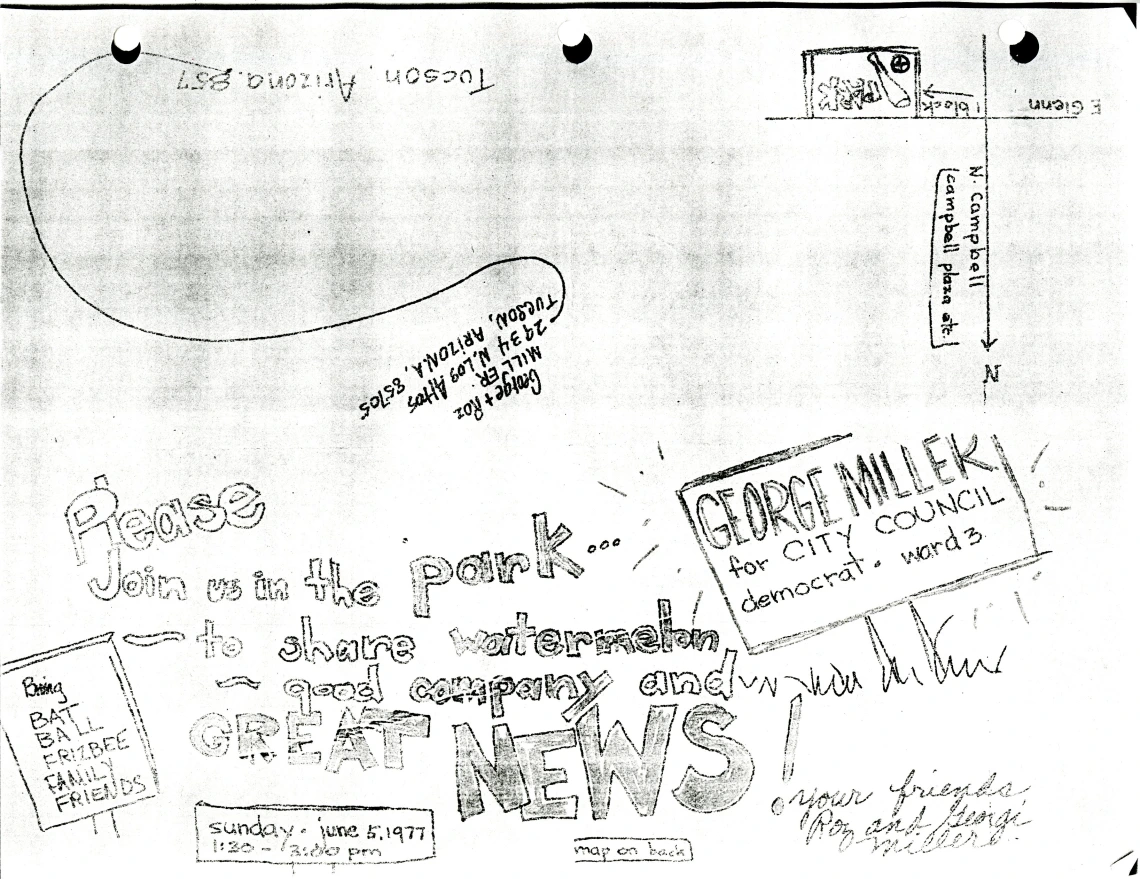 Tucson, Arizona. 857
George + Roz
MILLER
2934 N. Los Altos
TUCSON, ARIZONA, 85705
PARK
1 block
E Glenn
N. Campbell
(campbell plaza etc.)
N
Please
Join us in the park...
~ to share watermelon
~ good company and
GREAT NEWS!
GEORGE MILLER
for CITY COUNCIL
democrat. ward 3.
Bring
BAT
BALL
FRIZBEE
FAMILY
FRIENDS
sunday. june 5, 1977
1:30 - 3:00 pm
map on back
your friends
Roz and George
Miller